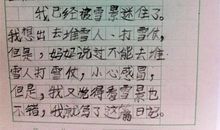 我已经被雪景迷住了。
我想出去堆雪人、打雪仗，
但是，妈妈说过不能去堆
雪人打雪仗，小心感冒，
但是，我又觉得看雪景也
不错，我就写了这篇日记。